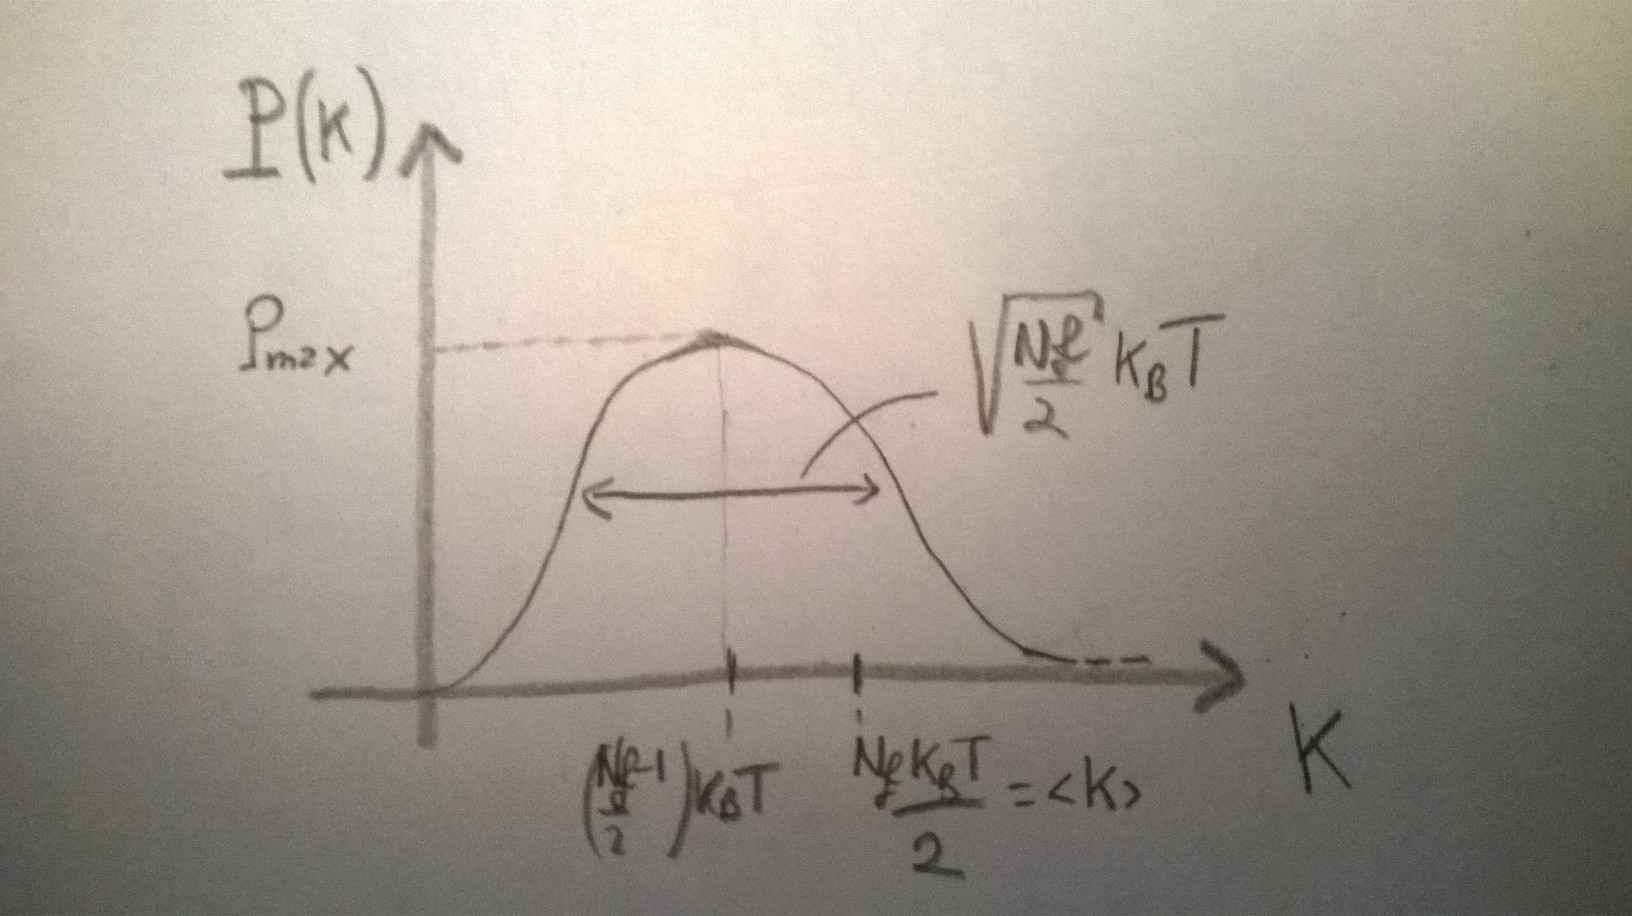 P(K)
Pmax
√(Nf/2) KBT
(Nf/2 -1) KBT
NfKBT/2 = <K>
K